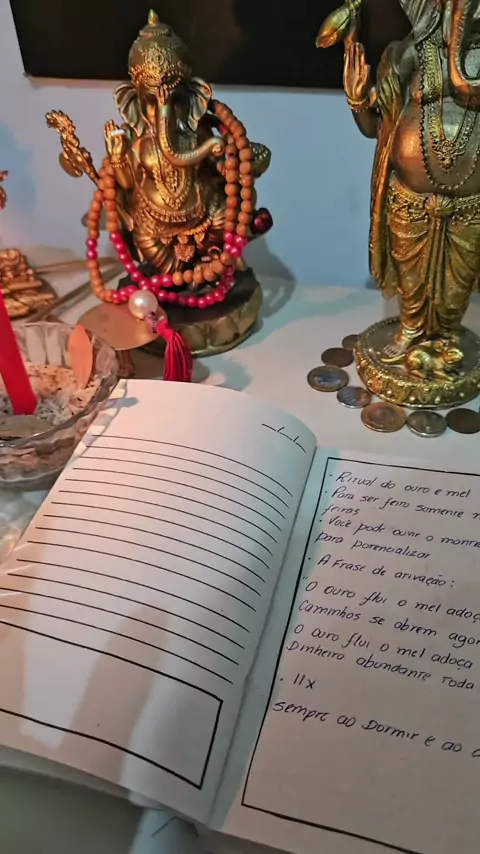 . Ritual do ouro e mel
. Para ser feito somente n
feiras
. Você pode ouvir o montra
para potencializar
. A Frase de ativação:
"O ouro flui o mel adoça
Caminhos se obrem agor
O ouro flui o mel adoça
Dinheiro abundante toda
. 11x
sempre ao Dormir e ao a